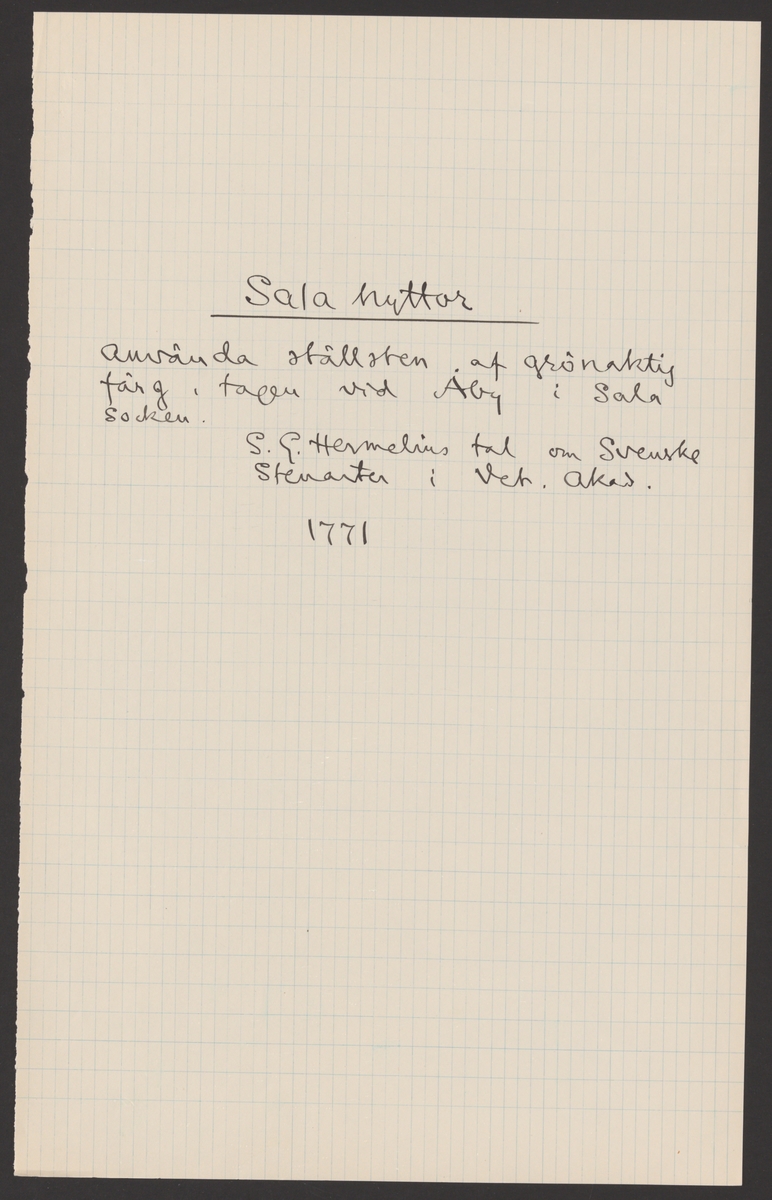 Sala hyttor
använda ställsten, af grönaktig
färg, tagen vid Åby i Sala
socken.
S. G. Hermelins tal om Svenske
Stenarter i Vet. Akad.
1771